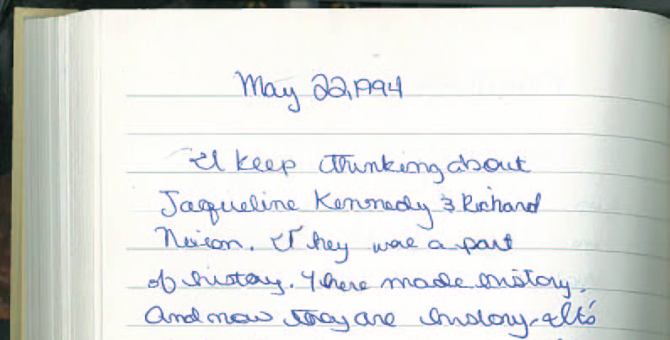 May 22, 1994
I keep thinking about
Jaqueline Kennedy & Richard
Nixon. They were a part
of history. There made history.
And now they are history. It's